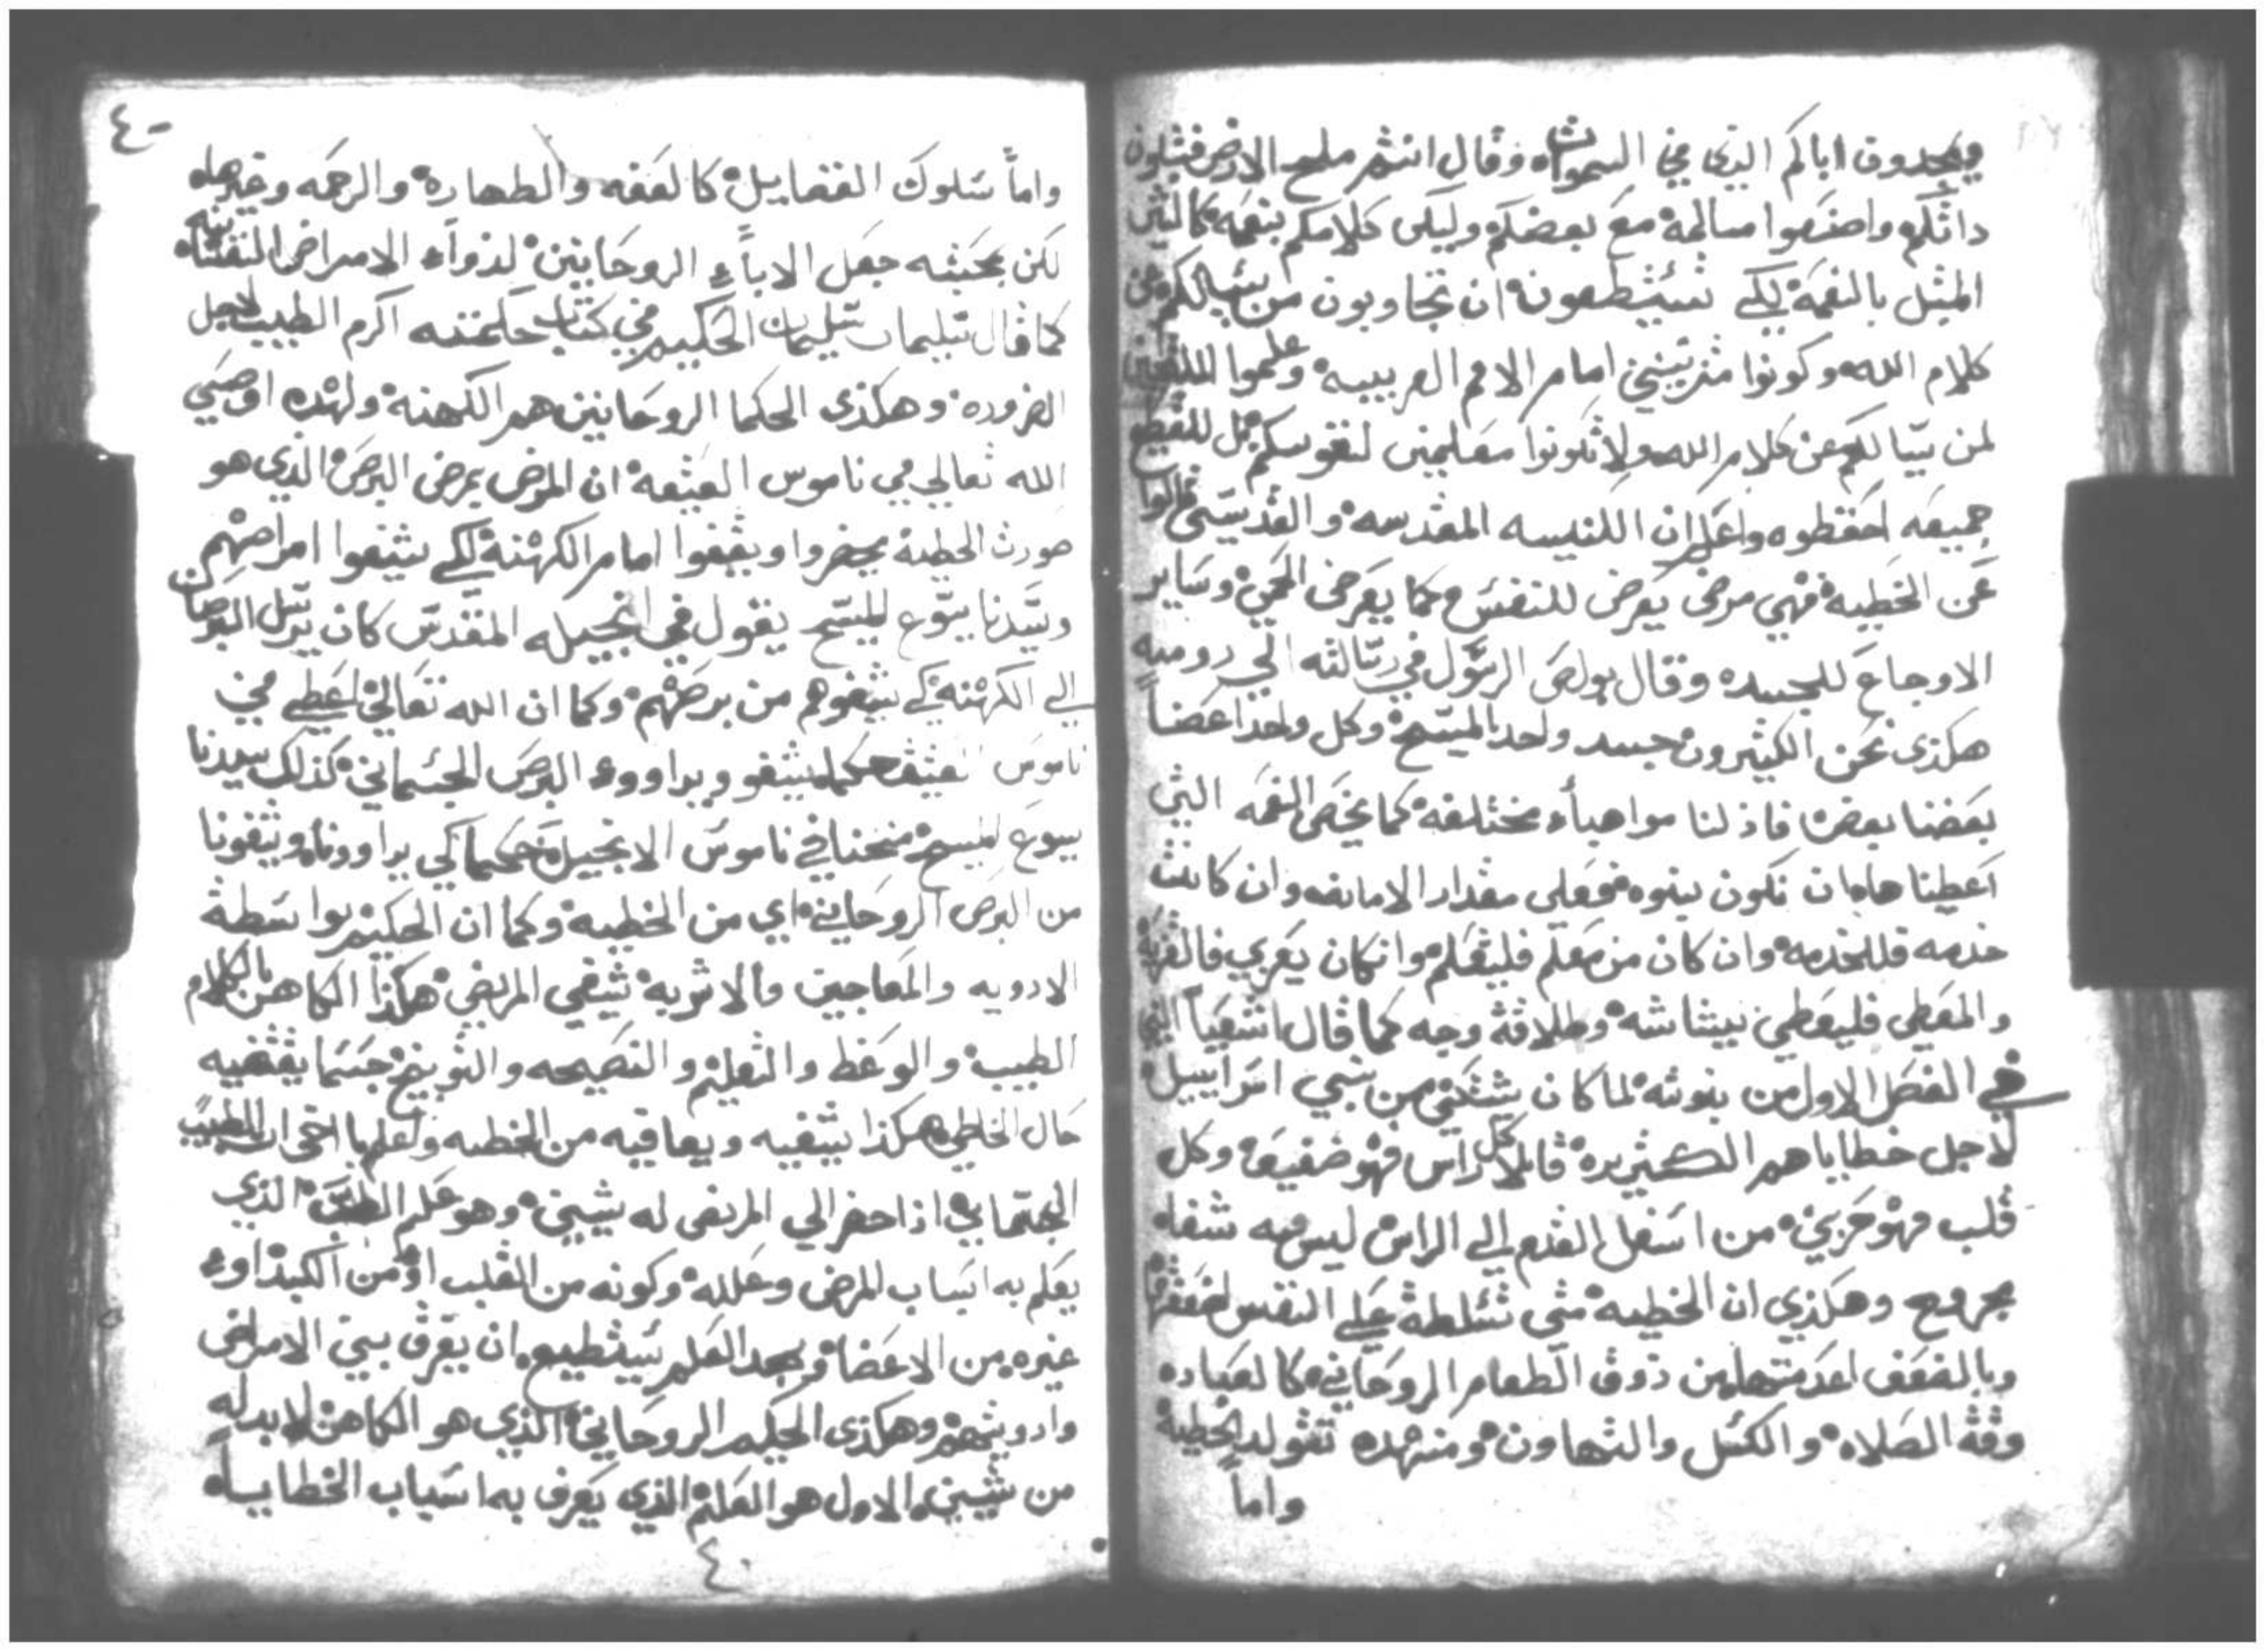 ويمجدون اباكم الذي في السموات وقال انتم ملح الارض فتلون
داتكم واصنعوا مسالمة مع بعضكم وليكن كلامكم بنعمه كالتي
المتل بالنعمة لكي تستطعون ان تجاوبون من يسالكم عن
كلام الله وكونوا متريبين امام الامم الغريبيه وعلموا
لمن يسالكم عن كلام الله ولا تكونوا معلمين لنفوسكم بل للقطيع
جميعه احفظوه واعلم ان الكنيسه المقدسه والقديسين قالوا
عن الخطيه فهي مرض يعرض للنفس كما يعرض الحمي وساير
الاوجاع للجسد وقال بولص الرسول في رسالته الي روميه
هكذي نحن الكثيرون جسد واحد بالمسيح وكل واحد اعضا
بعضنا بعض فاذ لنا مواهبأ مختلفة كما يخص النعمه التي
اعطينا هاان تكون بنوه فعلي مقدار الامانه وان كانت
خدمه فللخدمه وان كان من معلم فليعلم وان كان يعزي فالتعزية
والمعطي فليعطي ببشاشه وطلاقة وجه كما قال اشعيا النبي
في الفصل الاول من بنوته لما كان يشتكي من بني اسراييل
لاجل خطاياهم الكثيره قايلا كل راس فهو ضفيف وكل
قلب فهو حزين من اسفل القدم الي الراس ليس فيه شفاه
مجروح وهكذي ان الخطيه متي تسلطة علي النفس اضعفتها
وبالضعف اعدمتها من ذوق الطعام الروحاني كالعباده
وقة الصلاه والكسل والتهاون ومنهده تتولد الخطية
واما
٤٠
واماً سلوك الفضايل كالعفه والطهارة والرحمه وغيرهاه
لكن بمحبته جعل الاباء الروحانين لدواء الامراض النفسانيه
كما قال سليمان سليمان الحكيم في كتاب حكمته اكرم الطبيب لاجل
الضروره وهكذي الحكما الروحانين هم الكهنة ولهده اوصي
الله تعالي في ناموس العتيقة ان المرض بمرض البرص الذي هو
صورت الخطية يحضروا ويقفوا امام الكهنة لكي يشفوا امراضهم
وسيدنا يسوع المسيح يقول في انجيله المقدس كان يرسل البرصان
الي الكهنة لكي يشفوهم من برصهم وكما ان الله تعالي اعطي في
ناموس العتيقه حكما يشفو ويداووء البرص الجسماني كذلك سيدنا
يسوع المسيح منحنا في ناموس الانجيل حكما لكي يداوونا ويشفونا
من البرص الروحاني اي من الخطيه وكما ان الحكيم بواسطة
الادويه والمعاجين والاشربه تشفي المريض هكذا الكاهن بالكلام
الطيبه والوعظ والتعليم والنصيحه والتوبيخ حسما يقتضيه
حال الخاطي هكذا يشفيه ويعافيه من الخطيه واعلم يا اخي ان الطبيب
الجسماني اذا حضر الي المريض له شيين وهو علم الطب الذي
يعلم به اسباب المرض وعلله وكونه من القلب او من الكبد اوء
غيره من الاعضا وبهد العلم يستطيع ان يفرق بين الامراض
وادويتهم وهكذي الحكيم الروحاني الذي هو الكاهن لا بد له
من شيين الاول هو العلم الذي يعرف به اسباب الخطاياه
٤٠